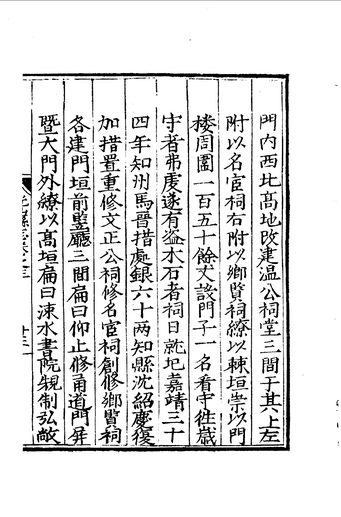 門內西北高地改建溫公祠堂三間于其上左
附以名宦祠右附以鄉賢祠繚以棘垣崇以門
楼周圍一百五十餘丈設門子一名看守徃嵗
守者弗䖍遂有盗木石者祠日就圮嘉靖三十
四年知州馬晉措處銀六十兩知縣沈紹慶復
加措置重修文正公祠修名宦祠創修鄉賢祠
各建門垣前竪廳三間扁曰仰止修甬道門屏
暨大門外繚以高垣扁曰涑水書院䂓制弘敞